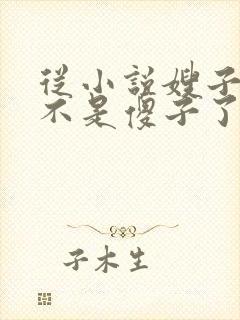 從小說嫂子
不是傻子了
子木生